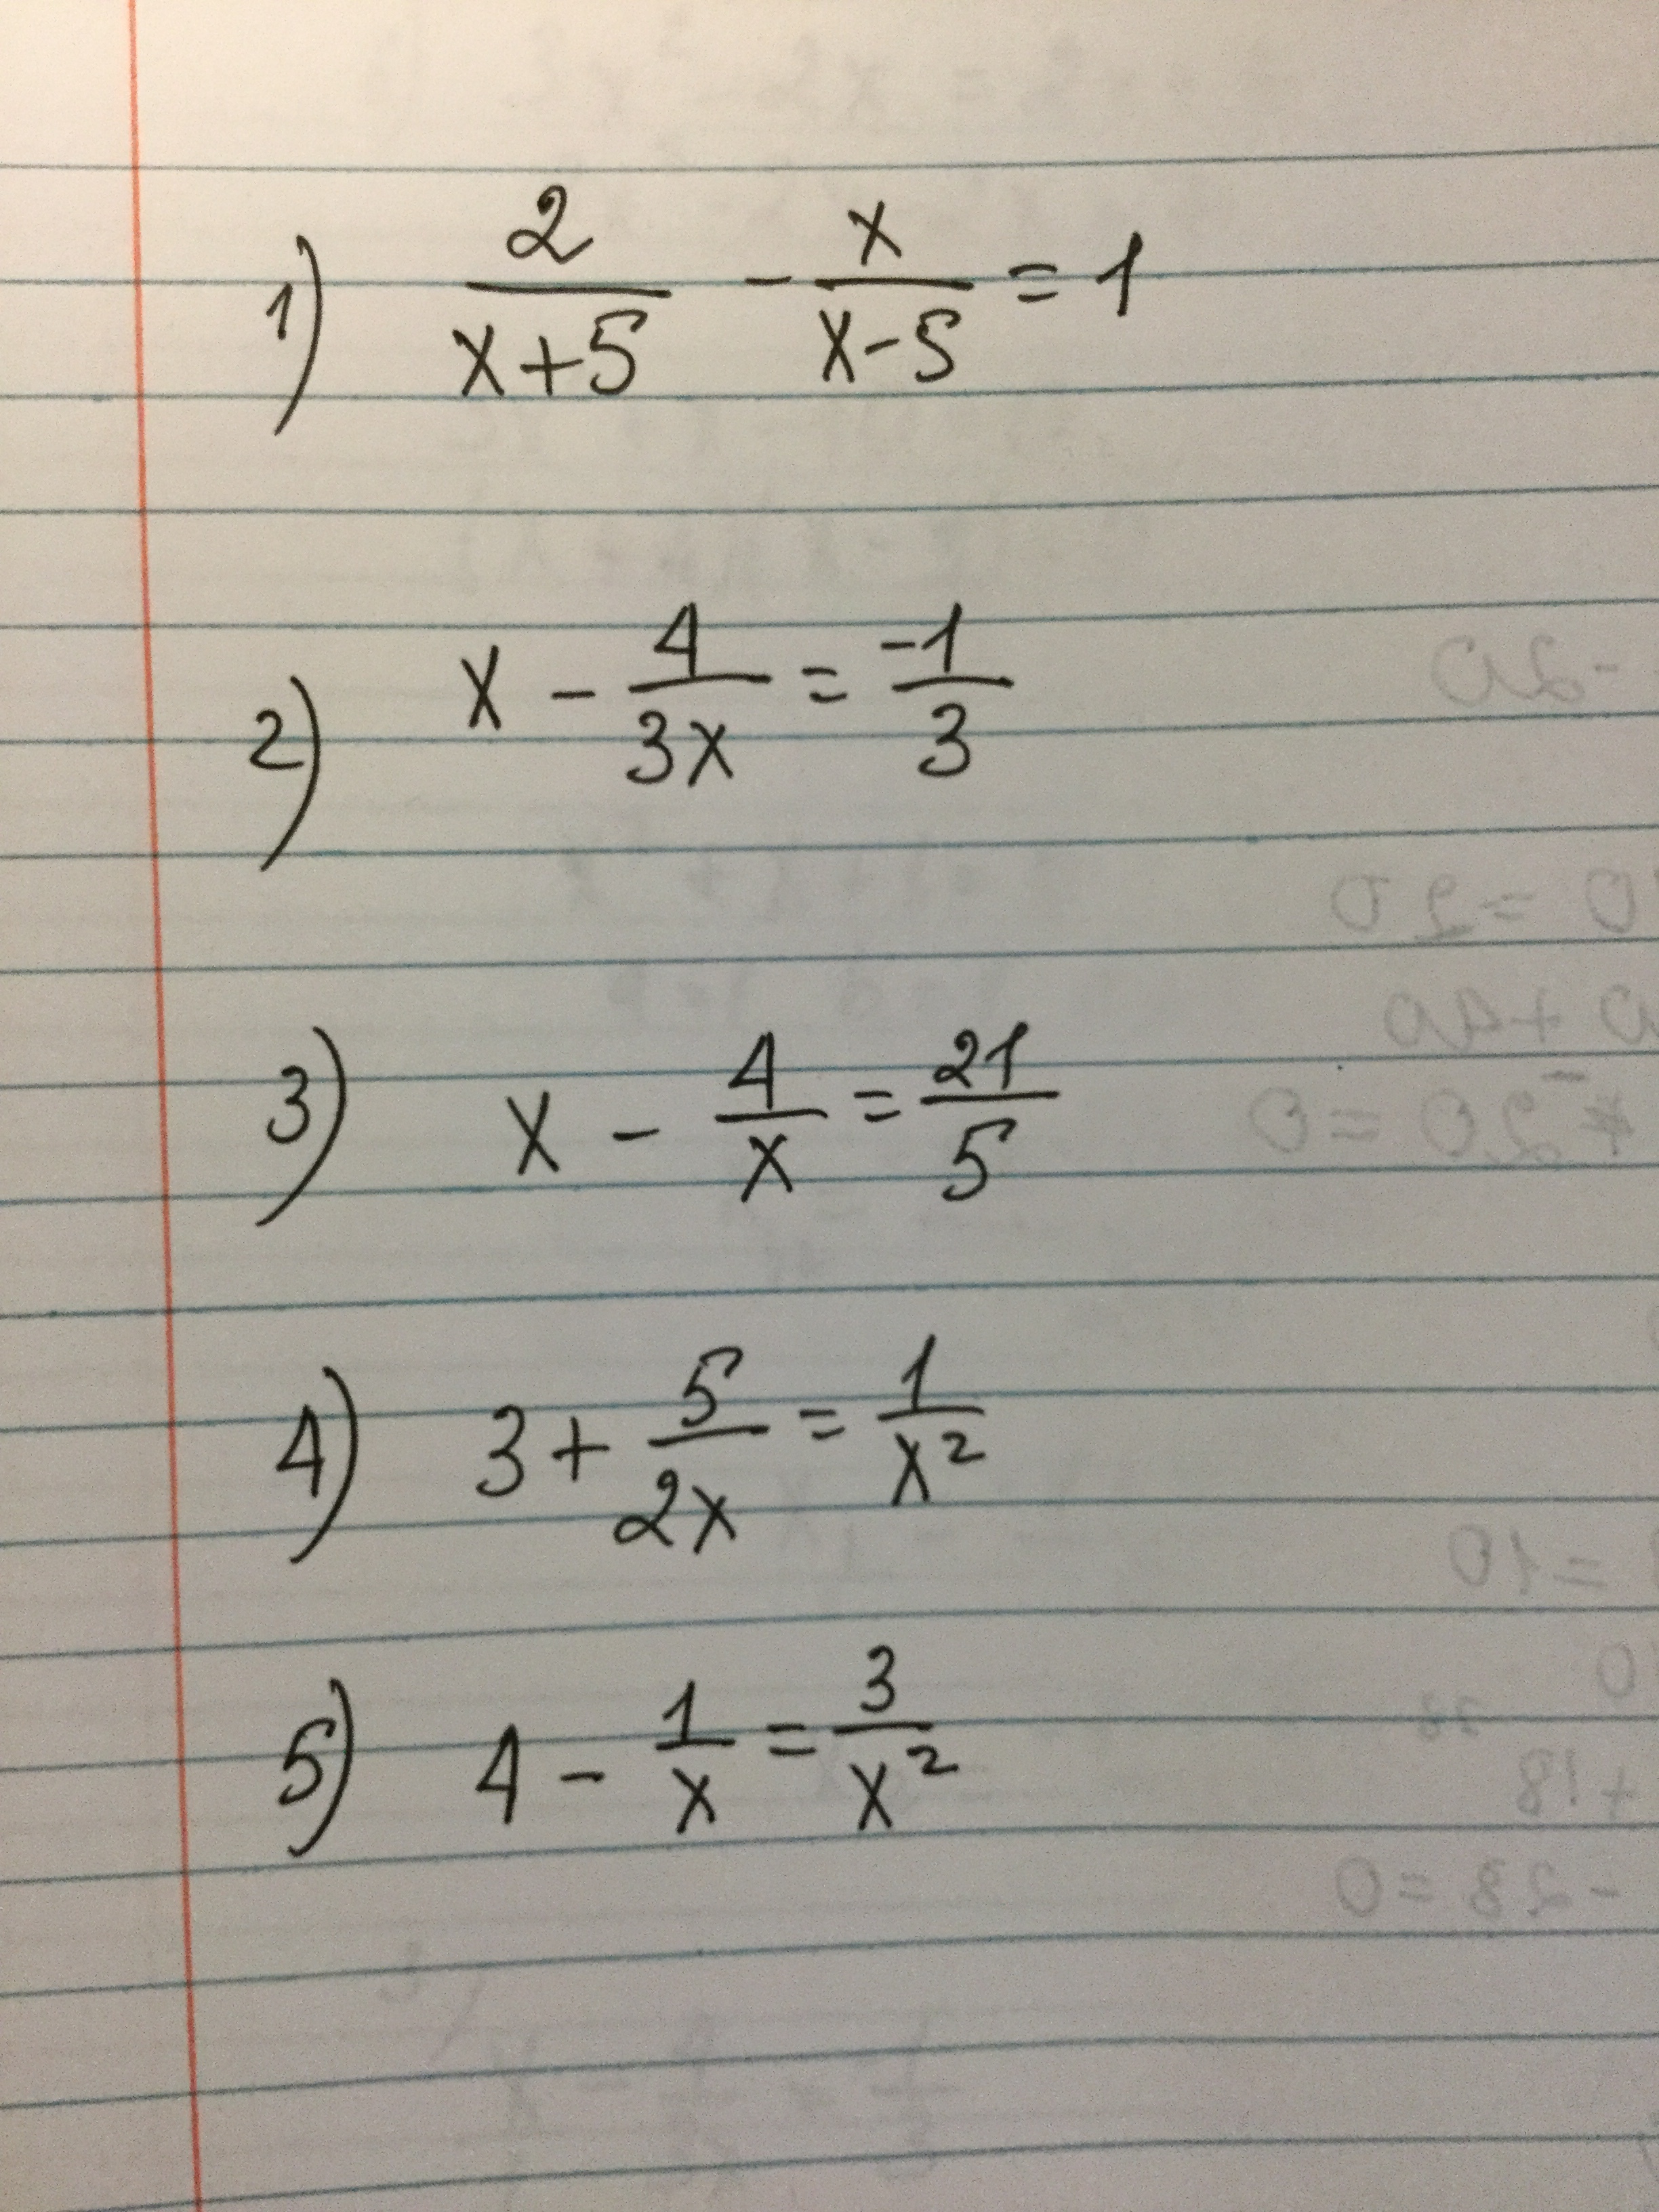 1) 2/(x+5) - x/(x-5) = 1
2) x - 4/(3x) = -1/3
3) x - 4/x = 21/5
4) 3 + 5/(2x) = 1/x²
5) 4 - 1/x = 3/x²